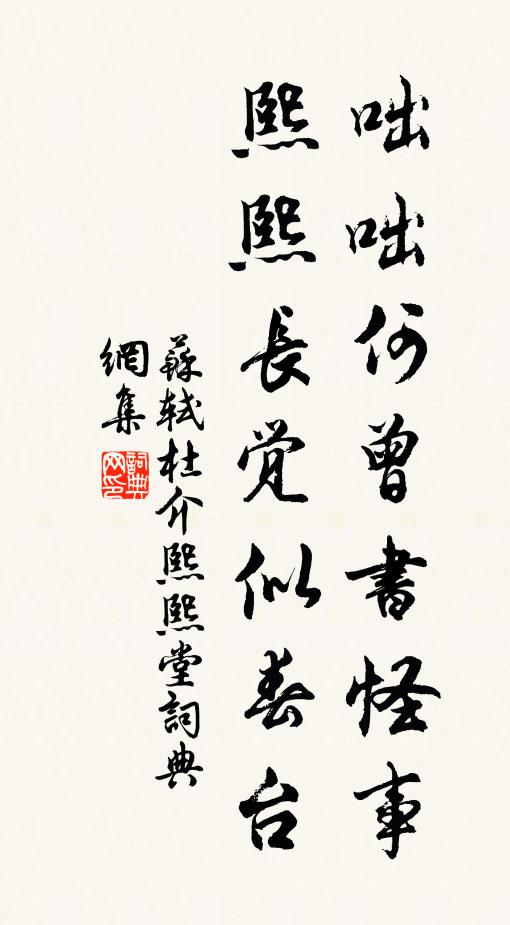 咄咄何曾書怪事
熙熙長觉似春台
蘇軾杜介熙熙堂詞典
網集
詞典
网印